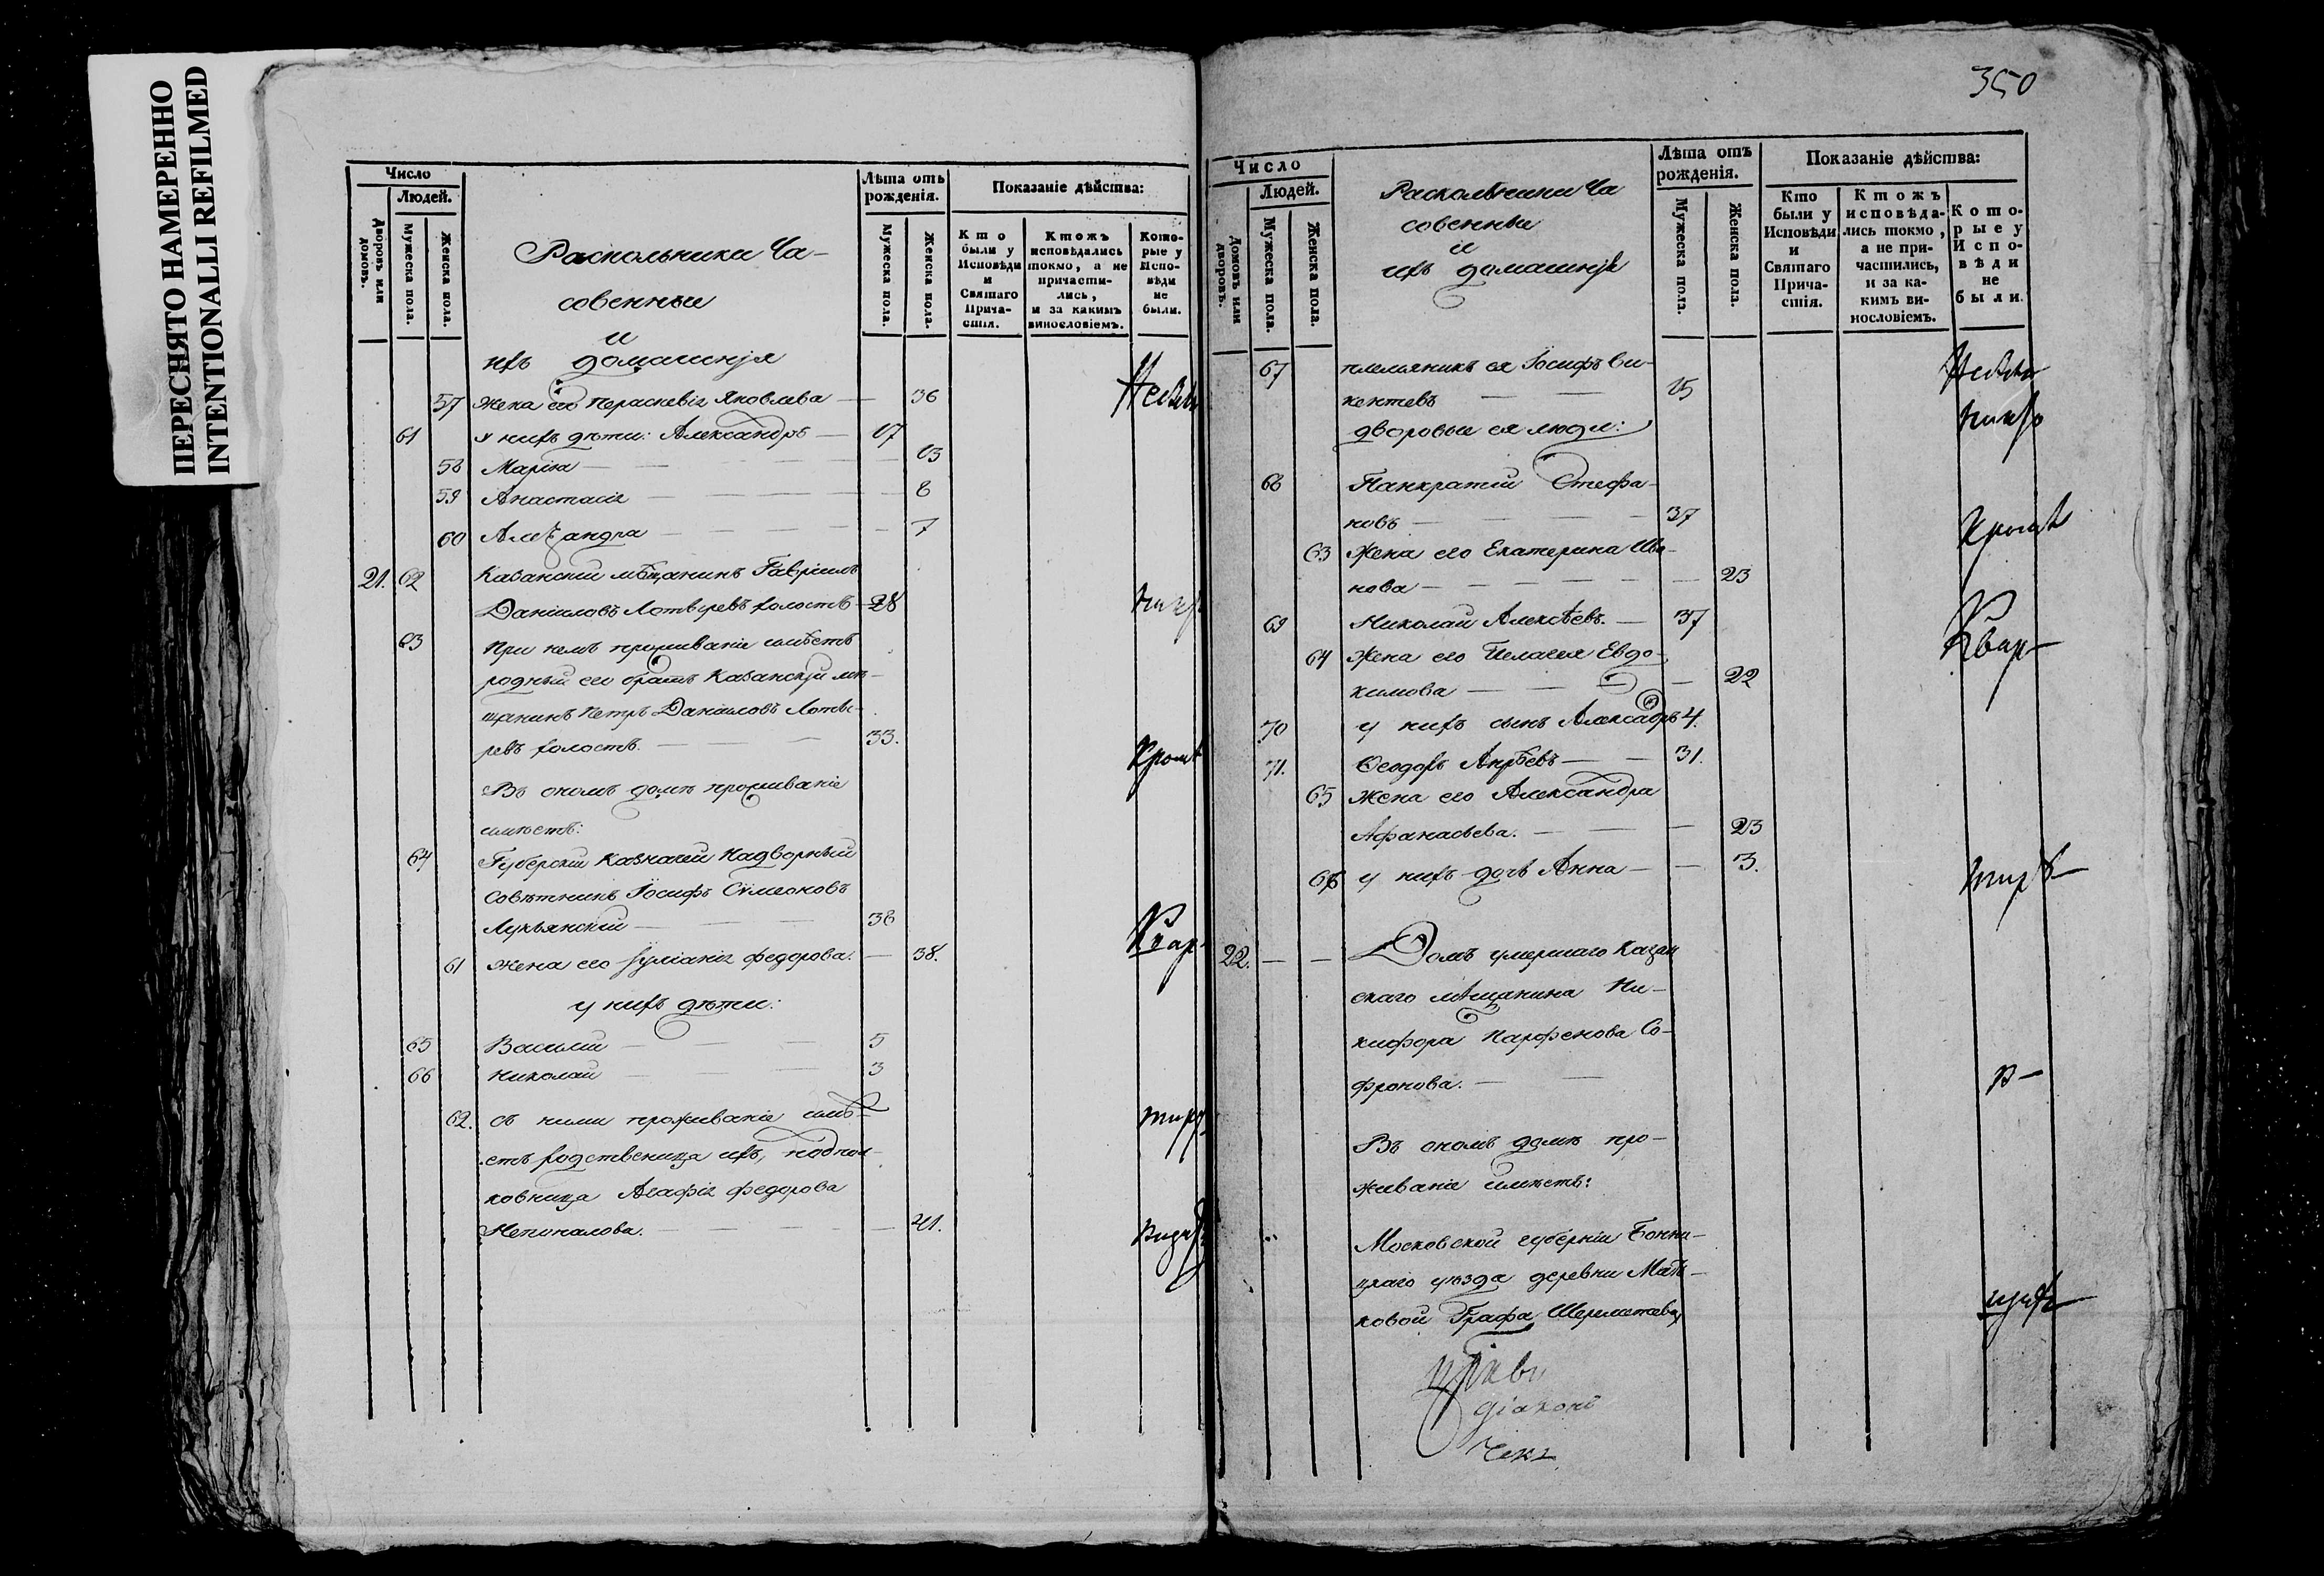 ПЕРЕСНЯТО НАМЕРЕННО
INTENTIONALLI REFILMED
Число
Людей.
Дворовъ или домовъ.
Мужеска пола.
Женска пола.
Раскольники Ча-
совенные
и
ихъ домашнія
Лѣта отъ рожденія.
Мужеска пола.
Женска пола.
Показаніе дѣйства:
Кто были у Исповѣди и Святаго Прича-стія.
Ктожъ исповѣдались токмо, а не причасти-лись, и за какимъ винословіемъ.
Кото-рые у Испо-вѣди не были.
57 Жена его Параскевіа Яковлева — 36
61 у нихъ дѣти: Александръ — 17
58 Маріа — 13
59 Анастасіа — 8
60 Алеѯандра — 7
21. 62 Казанскій мѣщанинъ Гавріилъ
Даніиловъ холостъ — 28
63 При немъ проживаніе имѣетъ
родный его братъ Казанскій мѣ-
щанинъ Петръ Даніиловъ
ревъ холостъ. — 33.
Въ ономъ домѣ проживаніе
имѣетъ:
64 Губерскій Казначей Надворный
Совѣтникъ Іосифъ Сѵмеоновъ
Лукьянскій — 38
61 Жена его Іуліаніа Федорова. — 38.
у нихъ дѣти:
65 Василій — 5
66 Николай — 3
62. съ ними проживаніе имѣ-
етъ родственица ихъ, подпол-
ковница Агафіа Федорова
— 41.
350
Число
Людей.
Домовъ или дворовъ.
Мужеска пола.
Женска пола.
Раскольники Ча
совенные
и
ихъ домашнія
Лѣта отъ рожденія.
Мужеска пола.
Женска пола.
Показаніе дѣйства:
Кто были у Исповѣди и Святаго Прича-стія.
Ктожъ исповѣда-лись токмо, а не при-частились, и за ка-кимъ ви-нословіемъ.
Кото-рые у Испо-вѣди не были.
67 племяникъ ея Іосифъ Ви-
кентевъ — 15
дворовые ея люди:
68 Панкратій Стефа-
новъ — 37
63 Жена его Екатерина Ива-
нова — 23
69 Николай Алексѣевъ. — 37
64 Жена его Пелагея Евдо-
кимова — 22
70 у нихъ сынъ Александръ 4.
71. Ѳеодоръ Андрѣевъ — 31.
65 Жена его Александра
Афанасьева. — 23
66 у нихъ дочь Анна — 3.
22. — — Домъ умершаго Казан
скаго мѣщанина Ни-
кифора Парфенова Со-
фронова. —
Въ ономъ домѣ про-
живаніе имѣетъ:
Московской губерніи Бонни-
цкаго уѣзда деревни
ковой Графа Шереметева
діаконъ